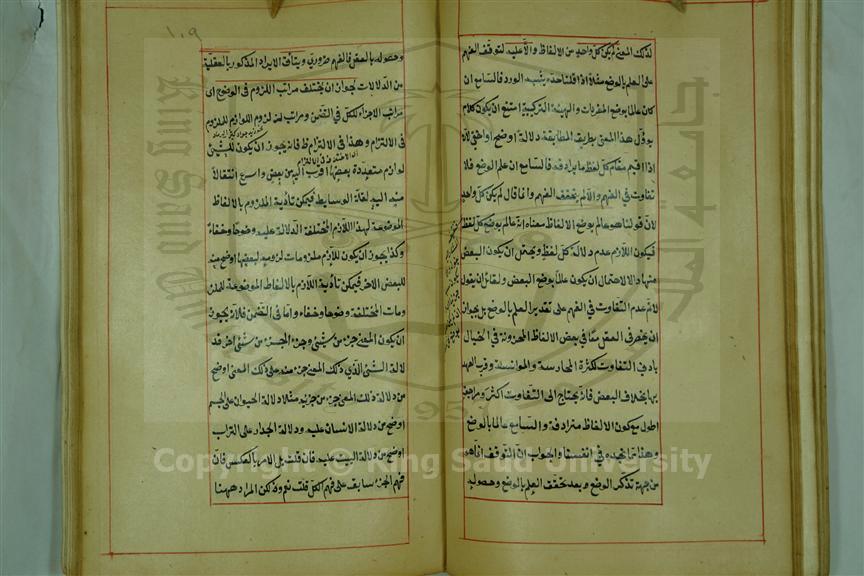 لذلك المعنى لم يكن كل واحد من الالفاظ دالا عليه لتوقف الفهم
على العلم بالوضع مثلا اذا قلنا خده يشبه الورد فالسامع ان
كان عالما بوضع المفردات والهيئة التركيبية امتنع ان يكون كلام
يؤدى هذا المعنى بطريق المطابقة دلالة اوضح او اخفى لانه
اذا اقيم مقام كل لفظ ما يرادفه فالسامع ان علم الوضع فلا
تفاوت في الفهم والا لم يتحقق الفهم وانما قال لم يكن كل واحد
لان قولنا هو عالم بوضع الالفاظ معناه انه عالم بوضع كل لفظ
فيكون اللازم عدم دلالة كل لفظ ويحتمل ان يكون البعض
منها دالا لاحتمال ان يكون عالما بوضع البعض ولقائل ان يقول
لانم عدم التفاوت في الفهم على تقدير العلم بالوضع بل يجوز ان
ان يحضر في العقل معاني بعض الالفاظ المخزونة في الخيال
بادنى التفات لكثرة الممارسة والموانسة وقرب العهد
بها بخلاف البعض فانه يحتاج الى التفات اكثر ومراجعة
اطول مع كون الالفاظ مترادفة والسامع عالما بالوضع
وهذا مما نجده في انفسنا والجواب ان التوقف انما هو
من جهة تذكر الوضع وبعد تحقق العلم بالوضع وحصوله
١٠٩
وحصوله بالعقل فالفهم ضروري ويتأتى الايراد المذكور بالعقلية
من الدلالات لجواز ان يختلف مراتب اللزوم في الوضوح اى
مراتب الاجزاء للكل في التضمن ومراتب لزوم اللوازم للملزوم
في الالتزام وهذا في الالتزام ظ فانه يجوز ان يكون للشيئ
لوازم متعددة بعضها اقرب اليه من بعض واسرع انتقالا
منه اليه لقلة الوسايط فيمكن تأدية الملزوم بالالفاظ
الموضوعة لهذا اللازم المختلفة الدلالة عليه وضوحا وخفاء
وكذا يجوز ان يكون للازم ملزومات لزومه لبعضها اوضح منه
للبعض الاخر فيمكن تأدية اللازم بالالفاظ الموضوعة للملز
ومات المختلفة وضوحا وخفاء واما في التضمن فلانه يجوز
ان يكون المعنى جزء من شيئ وجزء الجزء من شيئ اخر فد
لالة الشيئ الذي ذلك المعنى جزء منه على ذلك المعنى اوضح
من دلالة ذلك المعنى جزء من جزئه مثلا دلالة الحيوان على الجسم
اوضح من دلالة الانسان عليه ودلالة الجدار على التراب
اوضح من دلالة البيت عليه فان قلت بل الامر بالعكس فان
فهم الجزء سابق على فهم الكل قلت نعم ولكن المراد ههنا
Copyright © King Saud University
King Saud University
جامعة الملك سعود
1957